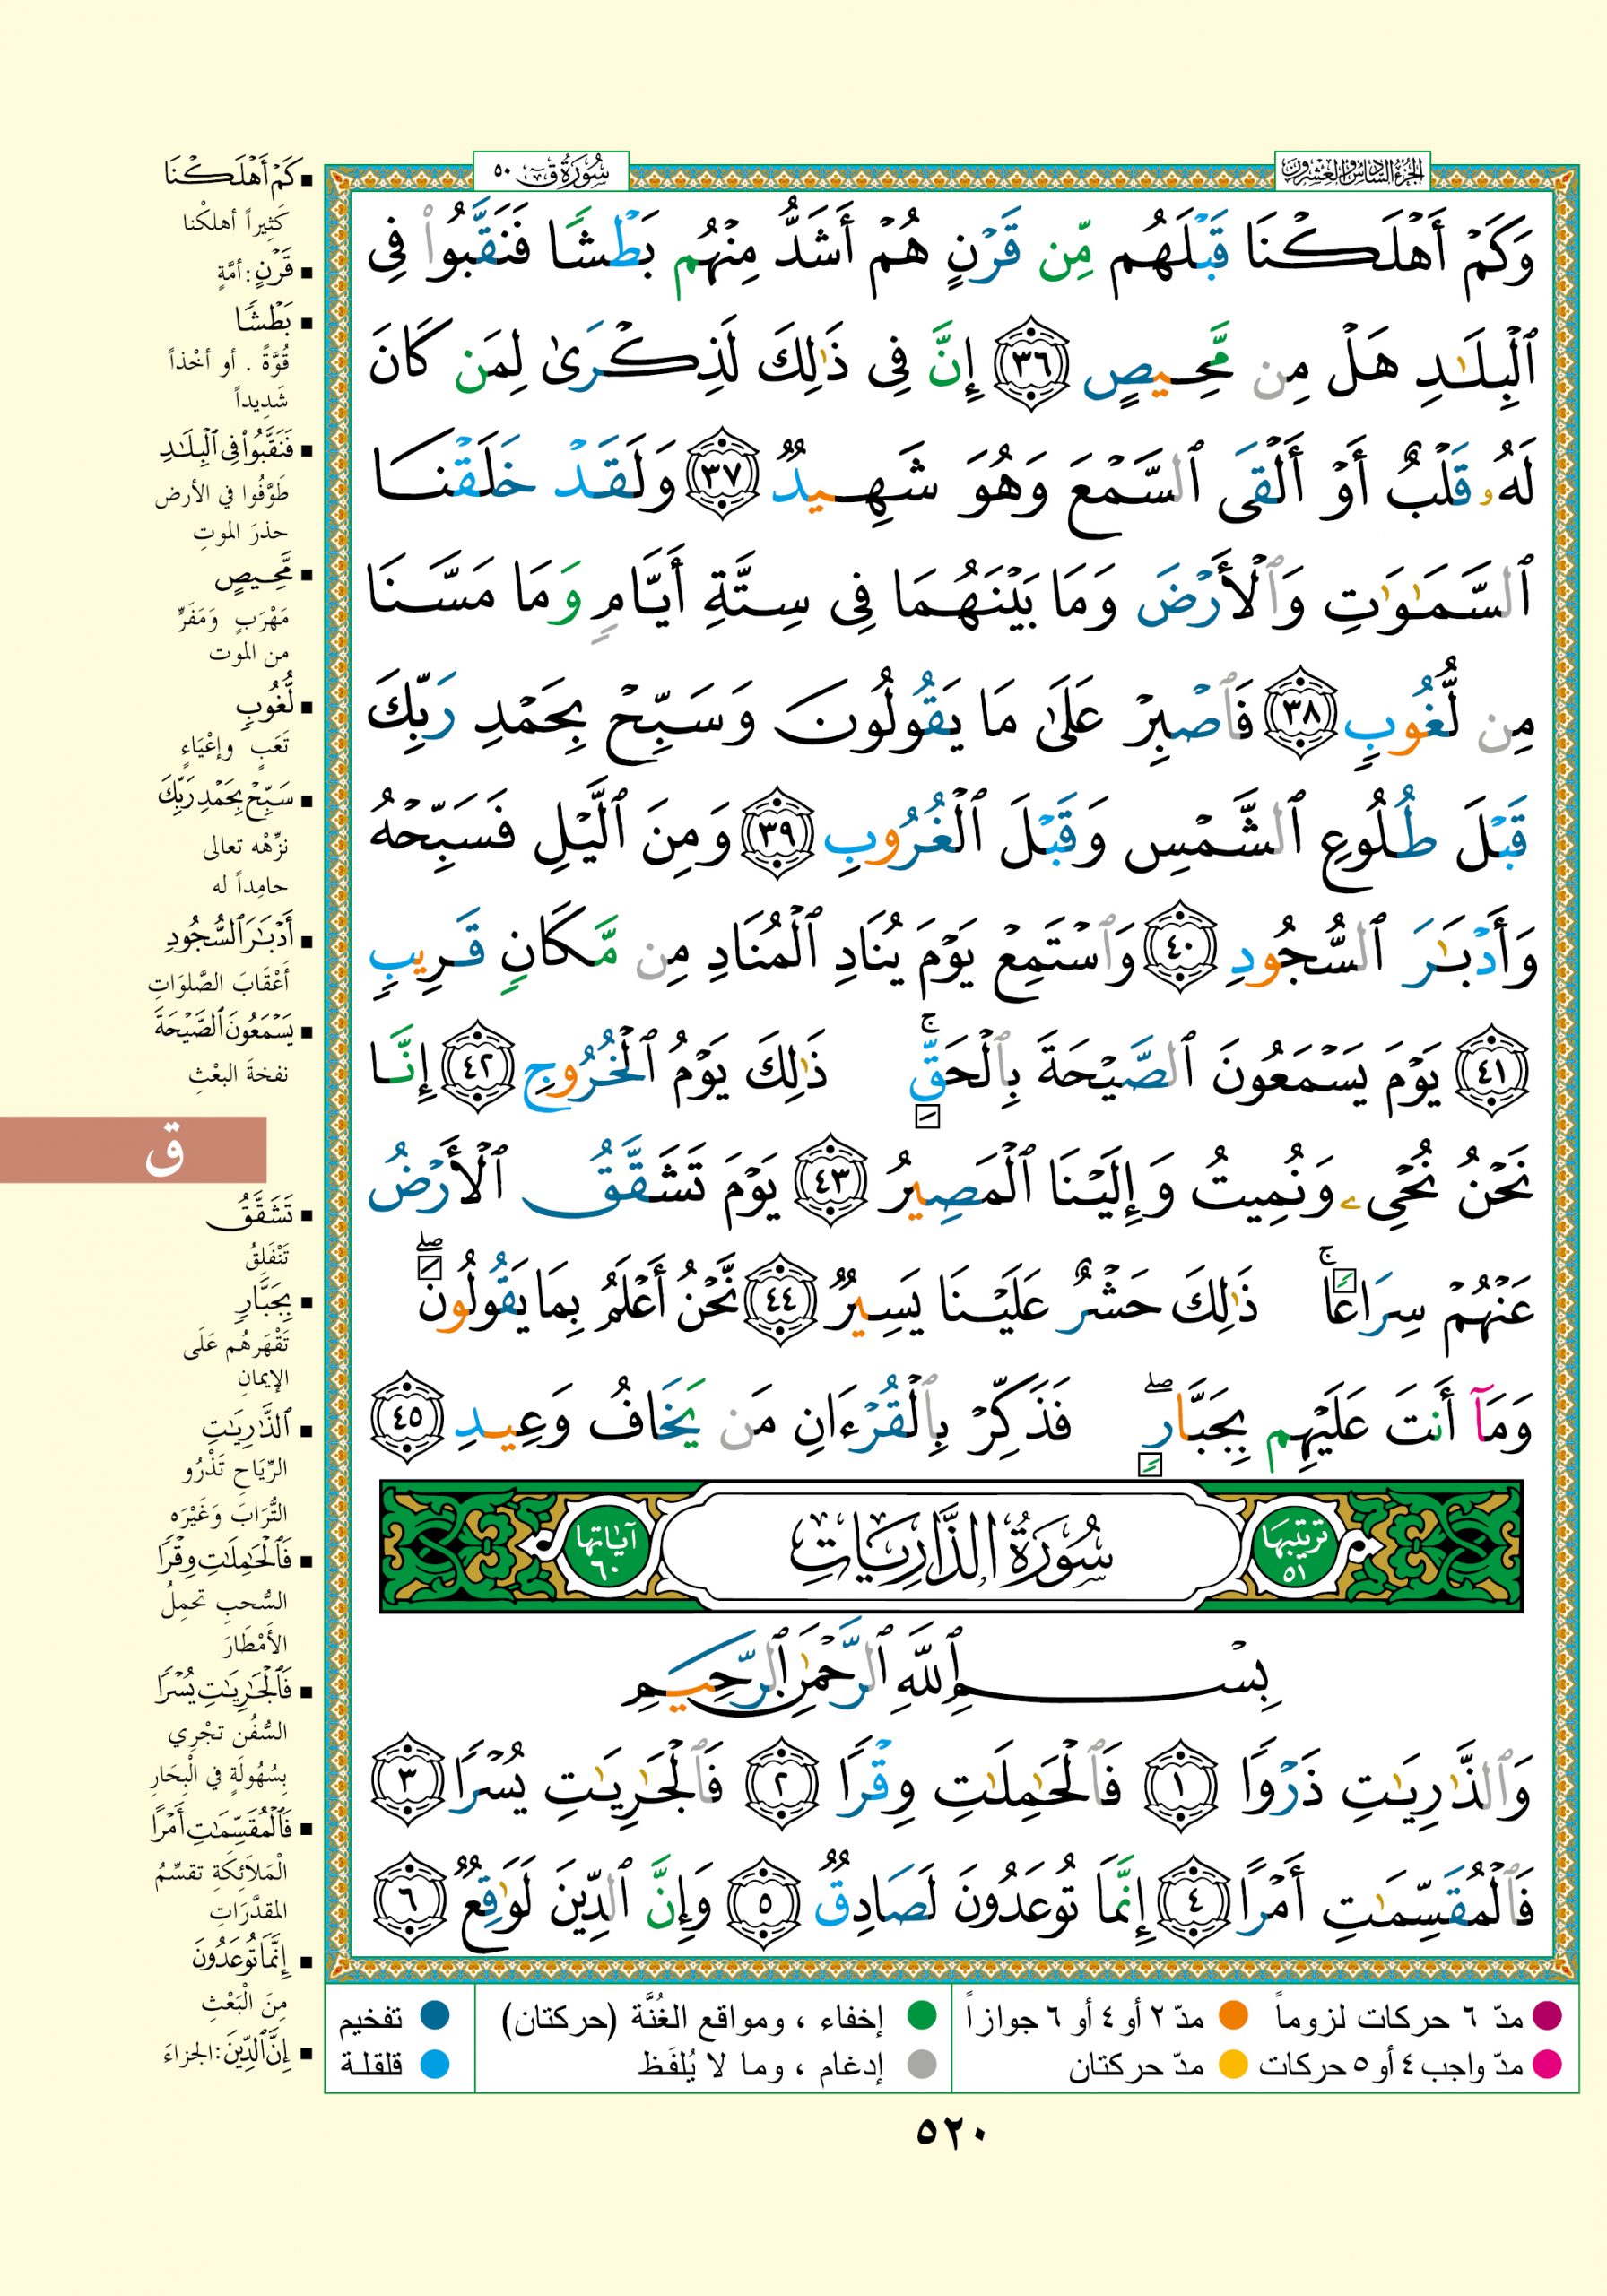 سُورَةُ قٓ ٥٠
الجزء السادس والعشرون
وَكَمْ أَهْلَكْنَا قَبْلَهُم مِّن قَرْنٍ هُمْ أَشَدُّ مِنْهُم بَطْشًا فَنَقَّبُوا۟ فِى
ٱلْبِلَـٰدِ هَلْ مِن مَّحِيصٍ ٣٦ إِنَّ فِى ذَٰلِكَ لَذِكْرَىٰ لِمَن كَانَ
لَهُۥ قَلْبٌ أَوْ أَلْقَى ٱلسَّمْعَ وَهُوَ شَهِيدٌ ٣٧ وَلَقَدْ خَلَقْنَا
ٱلسَّمَـٰوَٰتِ وَٱلْأَرْضَ وَمَا بَيْنَهُمَا فِى سِتَّةِ أَيَّامٍ وَمَا مَسَّنَا
مِن لُّغُوبٍ ٣٨ فَٱصْبِرْ عَلَىٰ مَا يَقُولُونَ وَسَبِّحْ بِحَمْدِ رَبِّكَ
قَبْلَ طُلُوعِ ٱلشَّمْسِ وَقَبْلَ ٱلْغُرُوبِ ٣٩ وَمِنَ ٱلَّيْلِ فَسَبِّحْهُ
وَأَدْبَـٰرَ ٱلسُّجُودِ ٤٠ وَٱسْتَمِعْ يَوْمَ يُنَادِ ٱلْمُنَادِ مِن مَّكَانٍ قَرِيبٍ
٤١ يَوْمَ يَسْمَعُونَ ٱلصَّيْحَةَ بِٱلْحَقِّ ۚ ذَٰلِكَ يَوْمُ ٱلْخُرُوجِ ٤٢ إِنَّا
نَحْنُ نُحْىِۦ وَنُمِيتُ وَإِلَيْنَا ٱلْمَصِيرُ ٤٣ يَوْمَ تَشَقَّقُ ٱلْأَرْضُ
عَنْهُمْ سِرَاعًا ۚ ذَٰلِكَ حَشْرٌ عَلَيْنَا يَسِيرٌ ٤٤ نَّحْنُ أَعْلَمُ بِمَا يَقُولُونَ ۖ
وَمَآ أَنتَ عَلَيْهِم بِجَبَّارٍ ۖ فَذَكِّرْ بِٱلْقُرْءَانِ مَن يَخَافُ وَعِيدِ ٤٥
ترتيبها ٥١
سُورَةُ الذَّارِيَاتِ
آياتها ٦٠
بِسْمِ ٱللَّهِ ٱلرَّحْمَـٰنِ ٱلرَّحِيمِ
وَٱلذَّٰرِيَـٰتِ ذَرْوًا ١ فَٱلْحَـٰمِلَـٰتِ وِقْرًا ٢ فَٱلْجَـٰرِيَـٰتِ يُسْرًا ٣
فَٱلْمُقَسِّمَـٰتِ أَمْرًا ٤ إِنَّمَا تُوعَدُونَ لَصَادِقٌ ٥ وَإِنَّ ٱلدِّينَ لَوَٰقِعٌ ٦
■ كَمْ أَهْلَكْنَا
كَثِيراً أهلكْنا
■ قَرْنٍ: أمَّةٍ
■ بَطْشًا
قُوَّةً . أو أخْذاً
شَدِيداً
■ فَنَقَّبُوا۟ فِى ٱلْبِلَـٰدِ
طَوَّفُوا في الأرض
حذرَ الموتِ
■ مَّحِيصٍ
مَهْرَبٍ وَمَفَرٍّ
من الموت
■ لُّغُوبٍ
تَعَبٍ وإعْيَاءٍ
■ سَبِّحْ بِحَمْدِ رَبِّكَ
نزِّهْه تعالى
حامِداً له
■ أَدْبَـٰرَ ٱلسُّجُودِ
أَعْقَابَ الصَّلوَاتِ
■ يَسْمَعُونَ ٱلصَّيْحَةَ
نفخةَ البعْثِ
ق
■ تَشَقَّقُ
تَنْفَلِقُ
■ بِجَبَّارٍ
تَقْهَرُهُم عَلَى
الإيمانِ
■ ٱلذَّٰرِيَـٰتِ
الرِّيَاحِ تَذْرُو
التُّرَابَ وَغَيْرَه
■ فَٱلْحَـٰمِلَـٰتِ وِقْرًا
السُّحبِ تحمِلُ
الأمْطَارَ
■ فَٱلْجَـٰرِيَـٰتِ يُسْرًا
السُّفُن تجْرِي
بِسُهُولَةٍ في الْبِحَارِ
■ فَٱلْمُقَسِّمَـٰتِ أَمْرًا
الْمَلاَئِكَةِ تقسِّمُ
المقدَّرَاتِ
■ إِنَّمَا تُوعَدُونَ
مِنَ الْبَعْثِ
■ إِنَّ ٱلدِّينَ: الجزاءَ
مدّ ٦ حركات لزوماً ● مدّ ٢ أو ٤ أو ٦ جوازاً
مدّ واجب ٤ أو ٥ حركات ● مدّ حركتان
إخفاء ، ومواقع الغُنَّة (حركتان)
إدغام ، وما لا يُلفَظ
تفخيم
قلقلة
٥٢٠